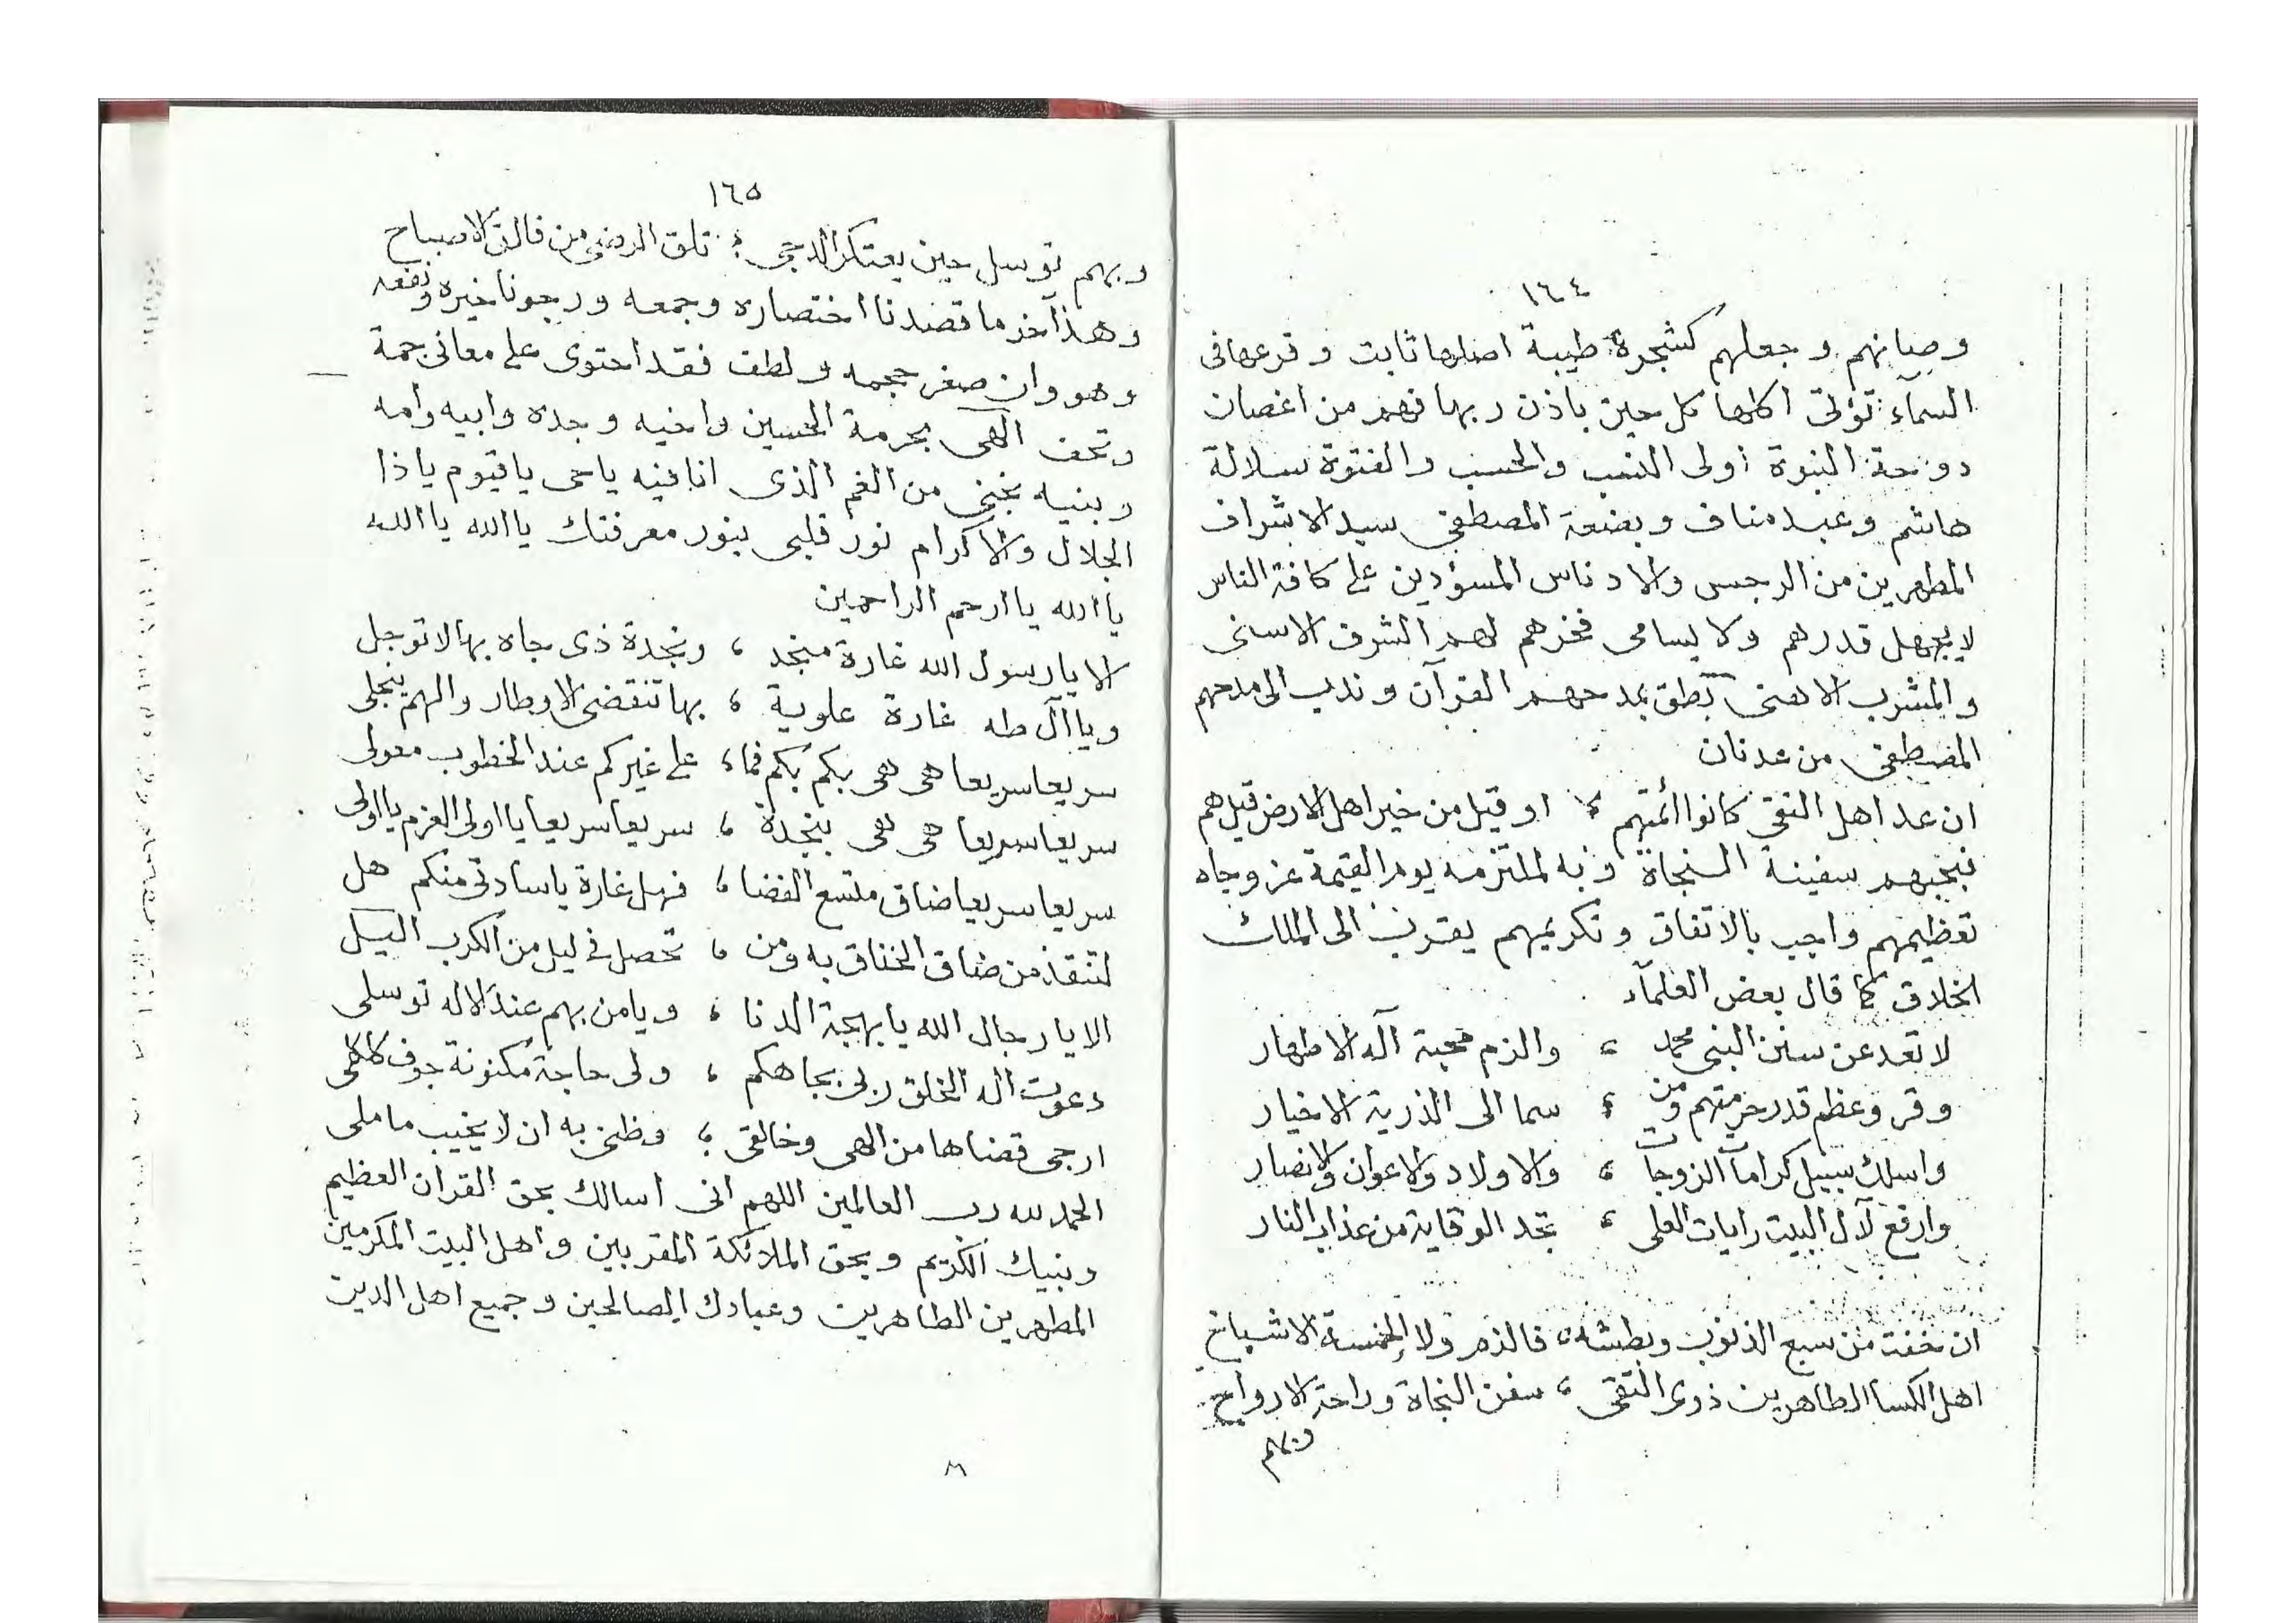 ١٦٤
وصيانهم وجعلهم كشجرة طيبة اصلها ثابت وفرعها فى
السمآء تؤتى اكلها كل حين باذن ربها فهم من اغصان
دوحة النبوة أولى النسب والحسب والفتوة سلالة
هاشم وعبد مناف وبضعة المصطفى سيد الاشراف
المطهرين من الرجس والادناس المسؤدين على كافة الناس
لا يجهل قدرهم ولا يسامى فخرهم لهم الشرف الاسنى
والمشرب الاهنى نطق بمدحهم القرآن وندب الى مدحهم
المصطفى من عدنان
ان عد اهل التقى كانوا أئمتهم ؛ او قيل من خير اهل الارض قيل هم
فبحبهم سفينة النجاة وبه لملتزمه يوم القيمة عز وجاه
تعظيمهم واجب بالاتفاق وتكريمهم يقرب الى الملك
الخلاق كما قال بعض العلمآء
لا تعد عن سنن النبى محمد ؛ والزم محبة آله الاطهار
وقر وعظم قدر حرمتهم ومن ؛ سما الى الذرية الاخيار
واسلك سبيل كرامات الزوجات ؛ والاولاد والاعوان والانصار
وارفع لآل البيت رايات العلى ؛ تجد الوقاية من عذاب النار
ان خفت من سبع الذنوب وبطشه ؛ فالذم ولا الخمسة الاشباخ
اهل الكسا الطاهرين ذوى التقى ؛ سفن النجاة وراحة الارواح
وبهم
١٦٥
وبهم توسل حين يعتكر الدجى ؛ تلق الرضى من فالق الاصباح
وهذا آخر ما قصدنا اختصاره وجمعه ورجونا خيره ونفعه
وهو وان صغر حجمه ولطف فقد احتوى على معانى جمة
وتحف الهى بحرمة الحسين واخيه وجده وابيه وامه
وبنيه نجنى من الغم الذى انا فيه يا حى يا قيوم يا ذا
الجلال والاكرام نور قلبى بنور معرفتك يا الله يا الله
يا الله يا ارحم الراحمين
الا يا رسول الله غارة منجد ؛ ونجدة ذى جاه بها لا توجل
ويا آل طه غارة علوية ؛ بها تنقضى الاوطار والهم ينجلى
سريعا سريعا هى هى بكم بكم فما ؛ على غيركم عند الخطوب معولى
سريعا سريعا هى هى بنجدة ؛ سريعا سريعا يا اولى العزم يا اولى
سريعا سريعا ضاق متسع الفضا ؛ فهل غارة يا سادتى منكم هل
لتنقذ من ضاق الخناق به ومن ؛ تحصل فى ليل من الكرب اليل
الا يا رجال الله يا بهجة الدنا ؛ ويا من بهم عند الاله توسلى
دعوت اله الخلق ربى بجاهكم ؛ ولى حاجة مكنونة جوف كلكلى
ارجى قضاها من الهى وخالقى ؛ وظنى به ان لا يخيب ما ملى
الحمد لله رب العالمين اللهم انى اسالك بحق القران العظيم
وبنبيك الكريم وبحق الملائكة المقربين واهل البيت المكرمين
المطهرين الطاهرين وعبادك الصالحين وجميع اهل الدين